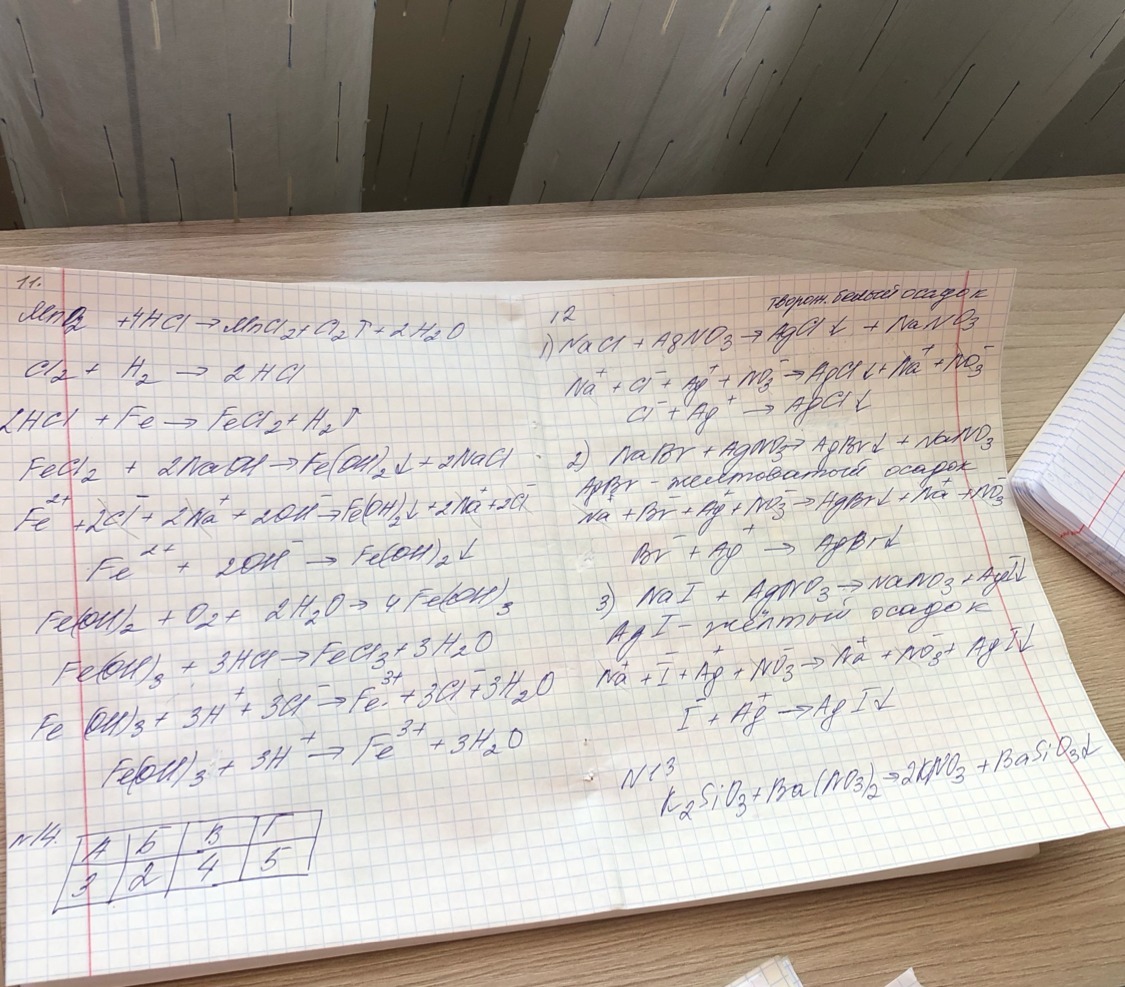 11.
MnO2 + 4HCl → MnCl2 + Cl2↑ + 2H2O
Cl2 + H2 → 2HCl
2HCl + Fe → FeCl2 + H2↑
FeCl2 + 2NaOH → Fe(OH)2↓ + 2NaCl
Fe²⁺ + 2Cl⁻ + 2Na⁺ + 2OH⁻ → Fe(OH)2↓ + 2Na⁺ + 2Cl⁻
Fe²⁺ + 2OH⁻ → Fe(OH)2↓
Fe(OH)2 + O2 + 2H2O → 4Fe(OH)3
Fe(OH)3 + 3HCl → FeCl3 + 3H2O
Fe(OH)3 + 3H⁺ + 3Cl⁻ → Fe³⁺ + 3Cl⁻ + 3H2O
Fe(OH)3 + 3H⁺ → Fe³⁺ + 3H2O
№14.
А Б В Г
3 2 4 5
12
творож. белый осадок
1) NaCl + AgNO3 → AgCl↓ + NaNO3
Na⁺ + Cl⁻ + Ag⁺ + NO3⁻ → AgCl↓ + Na⁺ + NO3⁻
Cl⁻ + Ag⁺ → AgCl↓
2) NaBr + AgNO3 → AgBr↓ + NaNO3
AgBr - желтоватый осадок
Na⁺ + Br⁻ + Ag⁺ + NO3⁻ → AgBr↓ + Na⁺ + NO3⁻
Br⁻ + Ag⁺ → AgBr↓
3) NaI + AgNO3 → NaNO3 + AgI↓
AgI - жёлтый осадок
Na⁺ + I⁻ + Ag⁺ + NO3⁻ → Na⁺ + NO3⁻ + AgI↓
I⁻ + Ag⁺ → AgI↓
N13
K2SiO3 + Ba(NO3)2 → 2KNO3 + BaSiO3↓